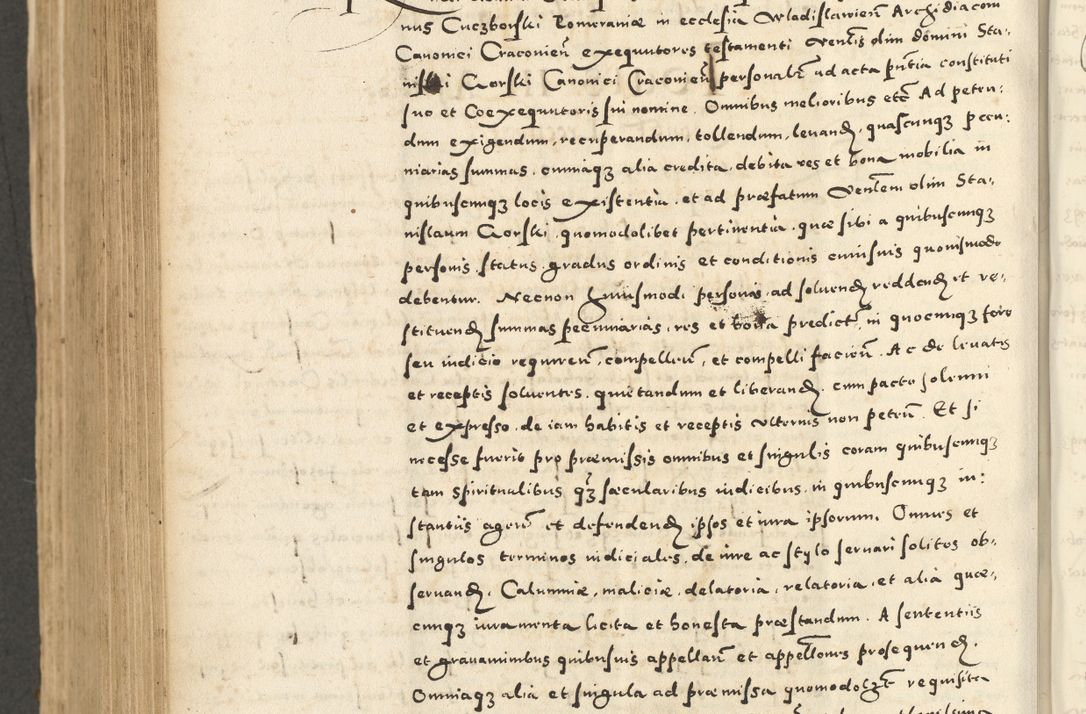 nus Cuczborski Pomeraniæ in ecclesia Wladislawien̄ Archidiacon
Canonici Craconien̄ exequutores testamenti Ven̄tis olim domini Sta-
nislai Gorski Canonici Craconien̄ personalr̄ ad acta pn̄tia constituti
suo et Coexequutoris sui nomine. Omnibus melioribus etc̄ Ad peten:
dum exigendum, recuperandum, tollendum, levandʒ, quascunqʒ pecu:
niarias summas, omniaqʒ alia credita, debita res et bona mobilia in
quibuscunqʒ locis existentia, et ad præfatum Ven̄lem olim Sta-
nislaum Gorski, quomodolibet pertinentia, quæ sibi a quibuscunqʒ
personis, status, gradus ordinis et conditionis cuiusuis quouismodo
debentur. Necnon huiusmodi personas ad soluendʒ reddendʒ et re-
stituendʒ summas pecuniarias, res et bona predict̄, in quocunqʒ foro
seu iudicio requiren̄, compellen̄, et compelli facien̄. Ac de leuatis
et receptis soluentes, quietandum et liberandʒ, cum pacto solenni
et expresso, de iam habitis et receptis vlterius non peten̄. Et si
necesse fuerit pro præmissis omnibus et singulis coram quibuscunqʒ
tam spiritualibus qʒ sæcularibus iudicibus, in quibuscunqʒ in:
stantiis agen̄ et defendendʒ ipsos et iura ipsorum. Omnes et
singulos terminos iudiciales, de iure ac stylo seruari solitos ob-
seruandʒ. Calumniæ, maliciæ, delatoria, relatoria, et alia quæ-
cunqʒ iuramenta licita et honesta præstandum. A sententiis
et grauaminibus quibusuis appellan̄ et appell̄ones prosequendʒ.
Omniaqʒ alia et singula ad præmissa quomodolʒt requisita